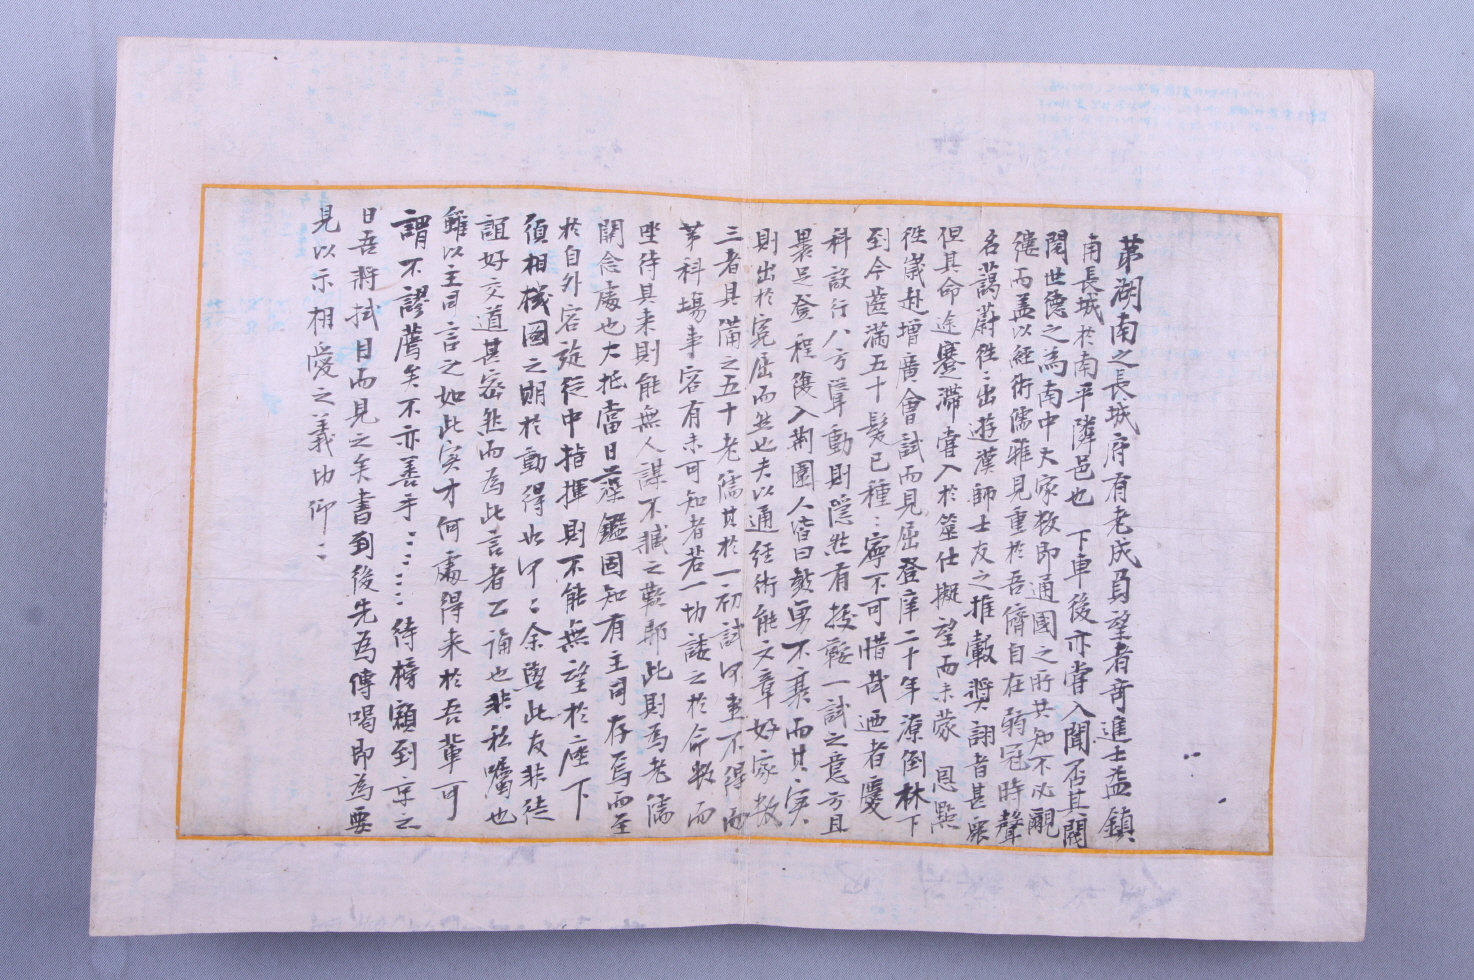 第湖南之長城府有老成負望者奇進士益鎭
南長城於南平隣邑也 下車後亦嘗入聞否其閥
閱世德之爲南中大家数即通國之所共知不必覼
縷而盖以經術儒雅見重於吾儕自在弱冠時聲
名藹蔚徃〻出遊漢師士友之推轂奬詡者甚衆
但其命途蹇滯嘗入於筮仕擬望而未蒙 恩點
徃歲赴增廣會試而見屈登庠二十年潦倒林下
到今齒滿五十髮已種〻寧不可惜哉迺者慶
科設行八方聳動則隱然有按轡一試之意方且
裹足登程復入荆圍人皆曰鼓勇不衰而其〻實
則出於寃屈而然也夫以通經術能文章好家数
三者具備之五十老儒其於一初試何患不得而
第科場事容有未可知者若一切諉之於命数而
坐待其来則能無人謀不臧之歎耶此則爲老儒
關念處也大抵當日藻鑑固知有主司存焉而至
於自外容旋從中指揮則不能無望於座下
須相機圖之期於動得如何〻余與此友非徒
誼好交道甚密然而爲此言者乙誦也非私囑也
雖以主司言之如此实才何處得来於吾輩可
謂不謬薦矣不亦善乎〻〻〻〻待榜額到京之
日吾將拭目而見之矣書到後先爲傳喝即爲要
見以示相愛之義切仰〻